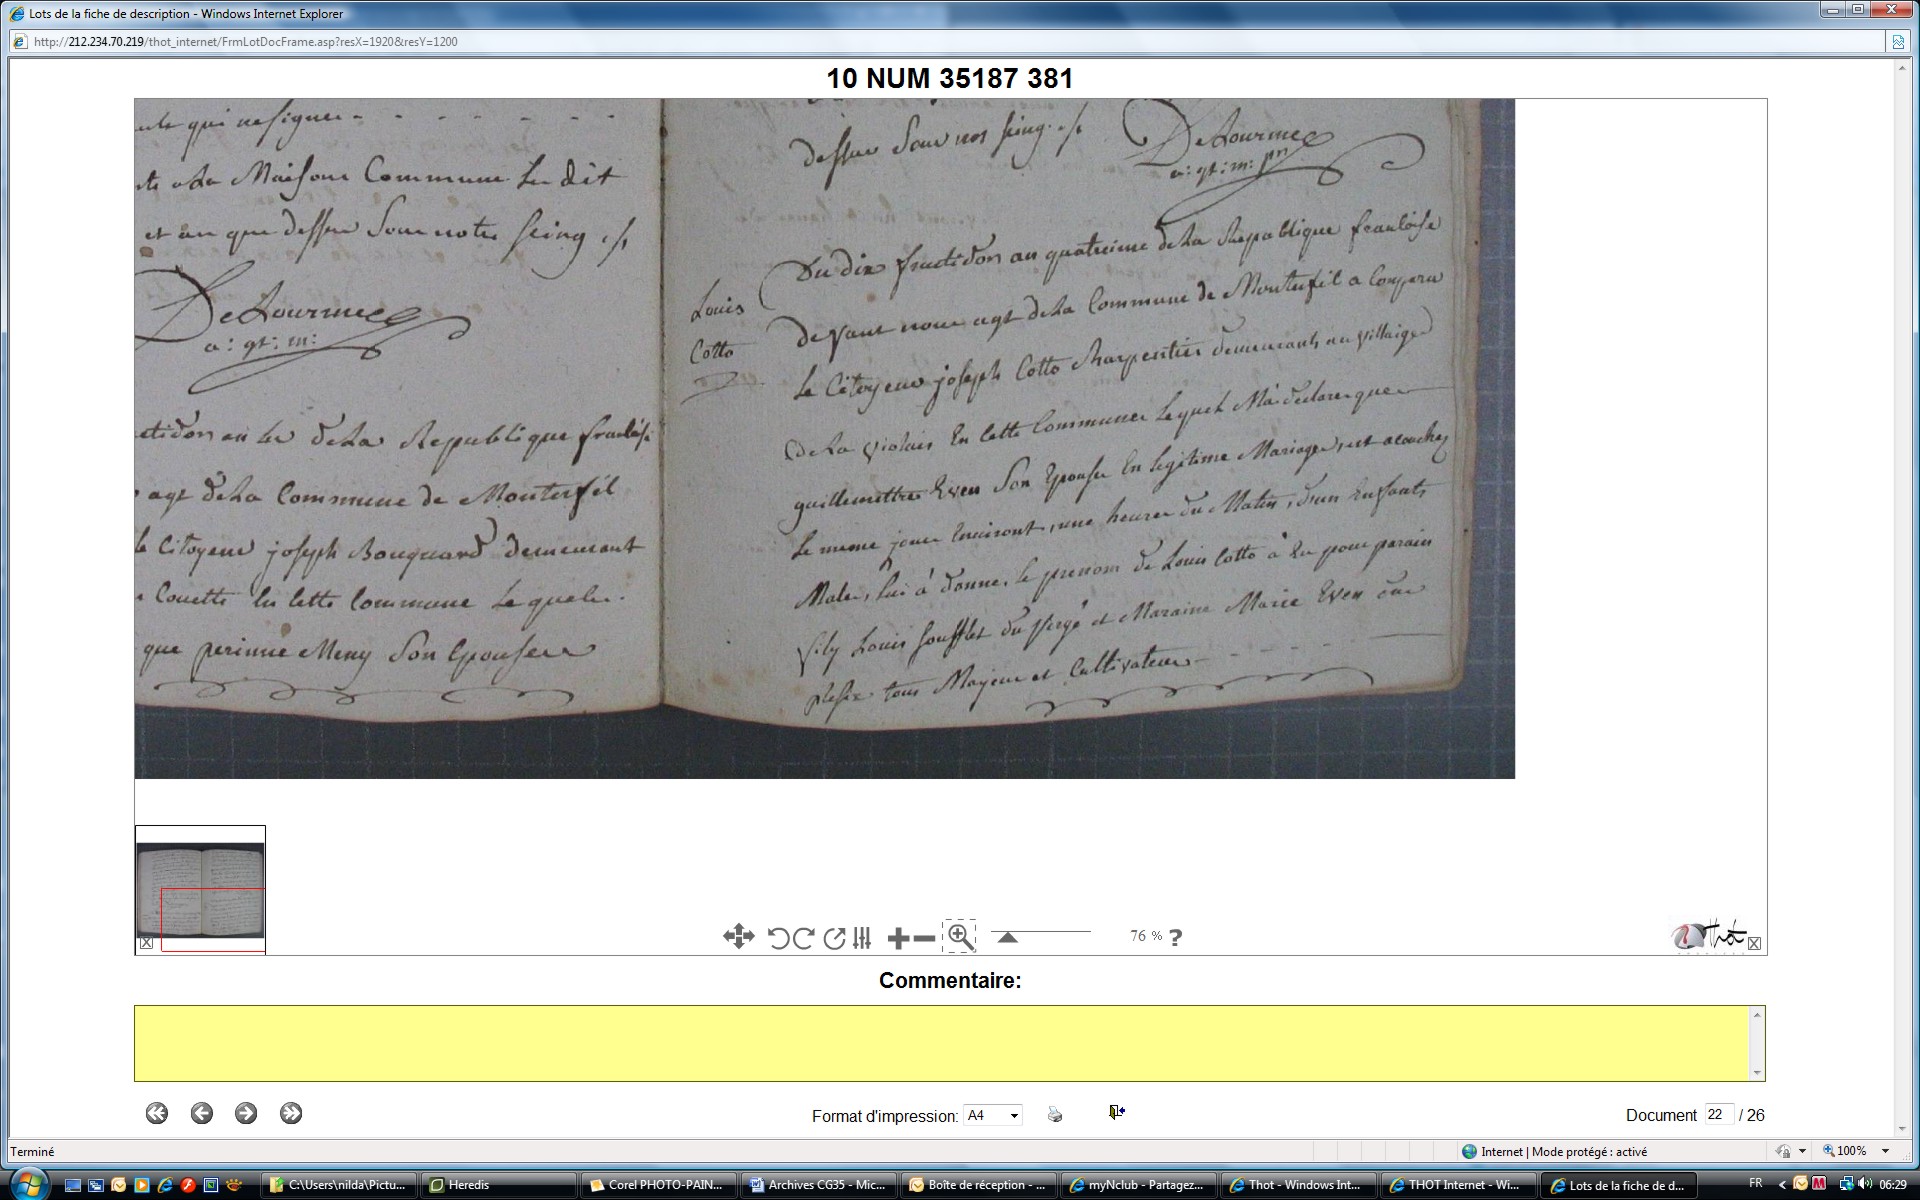 Lots de la fiche de description - Windows Internet Explorer
http://212.234.70.219/thot_internet/FrmLotDocFrame.asp?resX=1920&resY=1200
10 NUM 35187 381
qui ne signe - - - - - -
Maison Commune Le dit
et an que dessus Sous notre Seing ./.
Delourmee
a: gt: m:
an 4e de La Republique francoise
agt de La Commune de Monterfil
le Citoyen joseph Bouquard demeurant
Couette En Cette Commune Lequel
que perinne Meny Son Epouse
dessus Sous nos Seing ./.
Delourmee
a: gt: m: pm
Louis
Cotto
Du dix fructidor an quatrieme de La Republique francoise
devant nous agt de La Commune de Monterfil a Comparu
Le Citoyen joseph Cotto Charpentier demeurant au Village
de La Violais En Cette Commune Lequel M'a declare que
guillemette Even Son Epouse En legitime Mariage, est acouchez
Le meme jour Environt, une heure du Matin, d'un Enfants
Male, lui a donne, le prenom de Louis Cotto a Eu pour parain
Louis Soufflet du Vergé et Maraine Marie Even
plesix tous Majeur et Cultivateur - - - -
76 % ?
Thot
Commentaire:
Format d'impression: A4
Document 22 / 26
Terminé
Internet | Mode protégé : activé
100%
C:\Users\nilda\Pictu...
Heredis
Corel PHOTO-PAIN...
Archives CG35 - Mic...
Boîte de réception - ...
myNclub - Partagez...
Thot - Windows Int...
THOT Internet - Wi...
Lots de la fiche de d...
FR
06:29